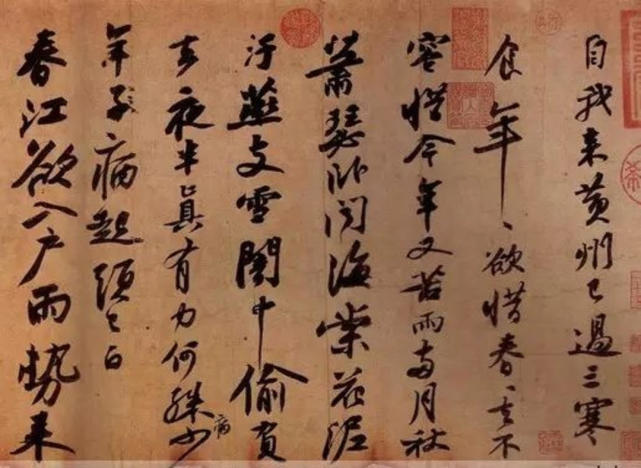 自我来黄州已過三寒
食年〻欲惜春〻去不
容惜今年又苦雨兩月秋
蕭瑟卧聞海棠花泥
汙燕支雪闇中偷負
去夜半真有力何殊病少
年子病起須已白
春江欲入户雨勢来